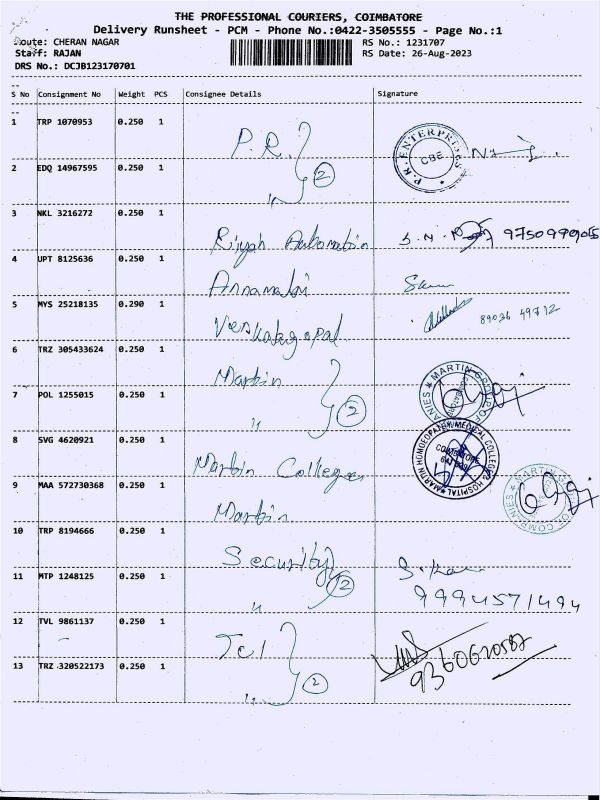 THE PROFESSIONAL COURIERS, COIMBATORE
Delivery Runsheet - PCM - Phone No.:0422-3505555 - Page No.:1
Route: CHERAN NAGAR RS No.: 1231707
Staff: RAJAN RS Date: 26-Aug-2023
DRS No.: DCJB123170701
S No Consignment No Weight PCS Consignee Details Signature
1 TRP 1070953 0.250 1 P.R. 2 P.K. ENTERPRISES CBE
2 EDQ 14967595 0.250 1 "
3 NKL 3216272 0.250 1 Riyah Automation
4 UPT 8125636 0.250 1 Annamalai
5 MYS 25218135 0.290 1 Venkatagopal 89036 49712
6 TRZ 305433624 0.250 1 Martin
7 POL 1255015 0.250 1 " 2 MARTIN GROUP OF COMPANIES
8 SVG 4620921 0.250 1 Martin College MARTIN HOMOEOPATHY MEDICAL COLLEGE & HOSPITAL
9 MAA 572730368 0.250 1 Martin MARTIN GROUP OF COMPANIES
10 TRP 8194666 0.250 1 Security 2
11 MTP 1248125 0.250 1 " 9994571494
12 TVL 9861137 0.250 1 Tel 9360620587
13 TRZ 320522173 0.250 1 " 2